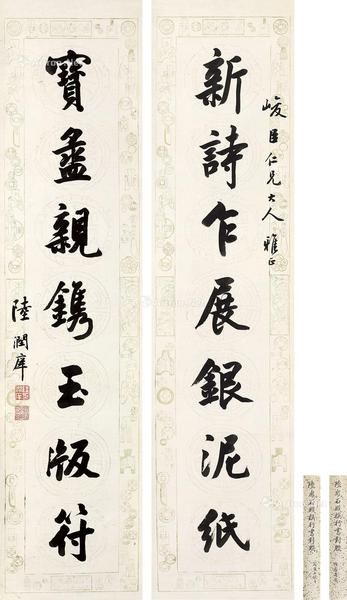 新詩乍展銀泥紙
峻臣仁兄大人雅正
寶盝親鐫玉版符
陸潤庠